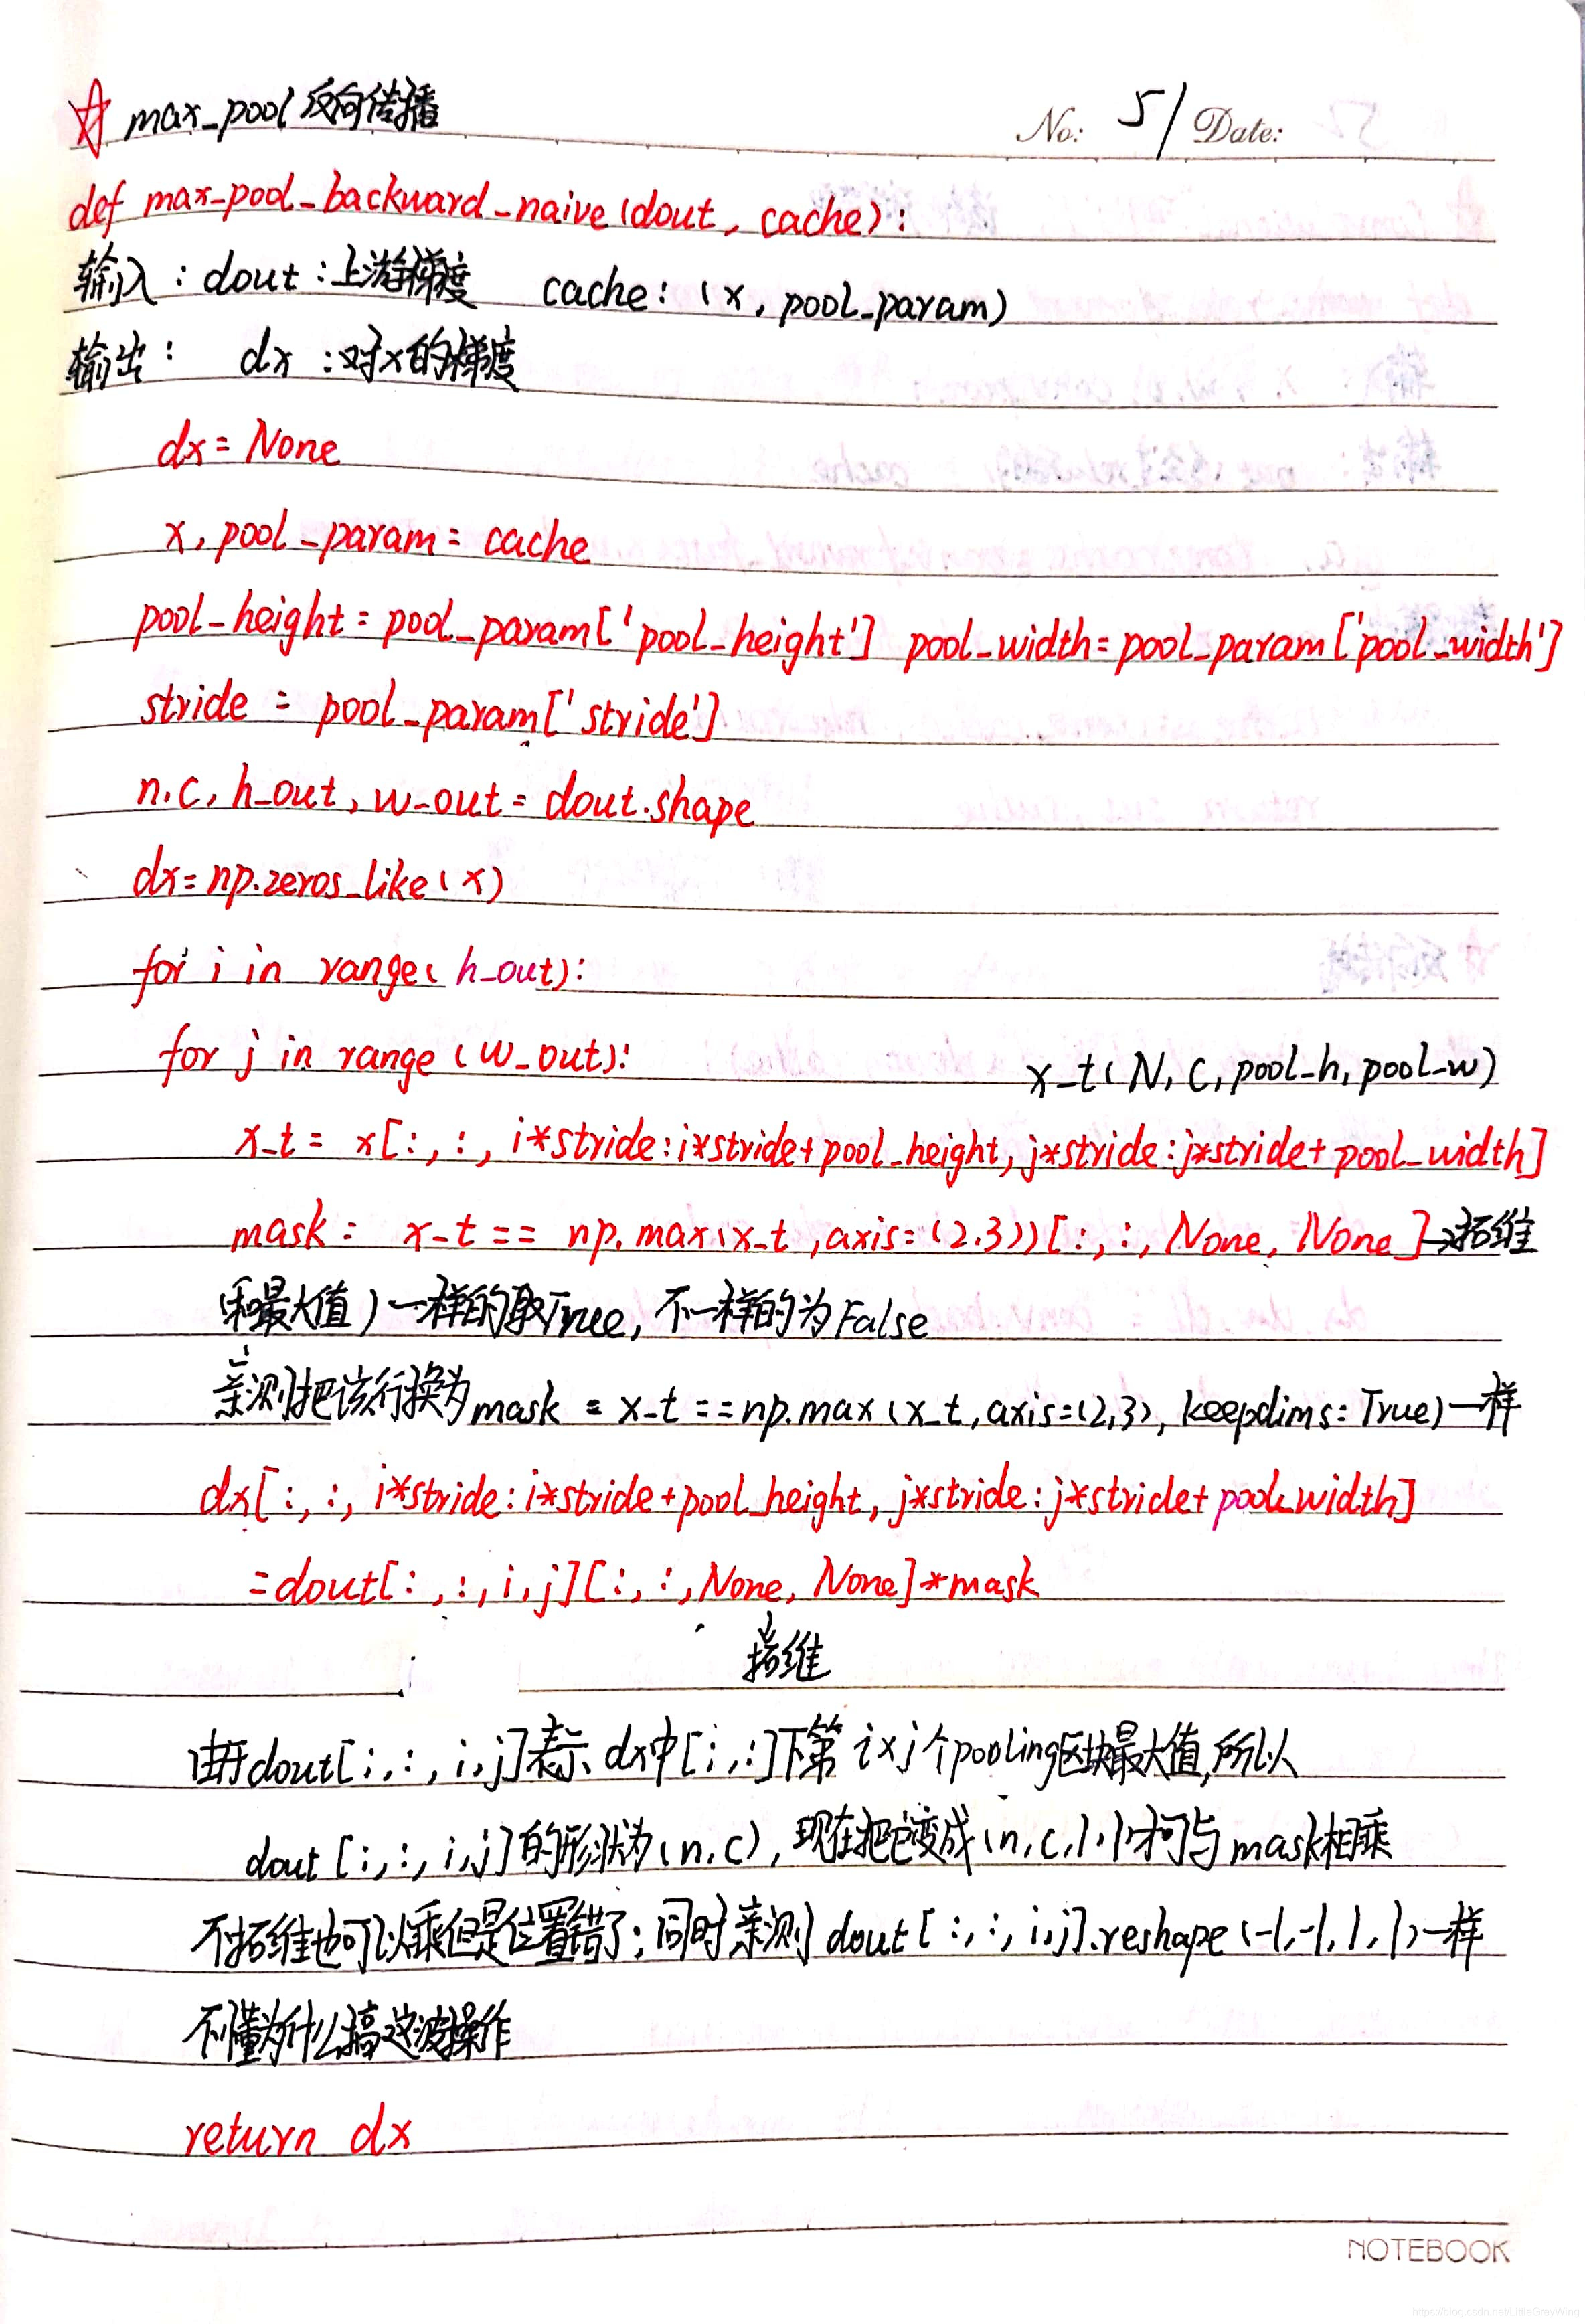 ☆ max_pool 反向传播
No: 51 Date:
def max_pool_backward_naive(dout, cache):
输入: dout: 上游梯度 cache: (x, pool_param)
输出: dx: 对x的梯度
dx = None
x, pool_param = cache
pool_height = pool_param['pool_height'] pool_width = pool_param['pool_width']
stride = pool_param['stride']
n, c, h_out, w_out = dout.shape
dx = np.zeros_like(x)
for i in range(h_out):
for j in range(w_out):
x_t(N, C, pool_h, pool_w)
x_t = x[:, :, i*stride:i*stride+pool_height, j*stride:j*stride+pool_width]
mask = x_t == np.max(x_t, axis=(2,3))[:, :, None, None] →拓维
(和最大值)一样的取True, 不一样的为False
亲测把该行换为mask = x_t == np.max(x_t, axis=(2,3), keepdims=True)一样
dx[:, :, i*stride:i*stride+pool_height, j*stride:j*stride+pool_width]
=dout[:, :, i, j][:, :, None, None]*mask
↓
拓维
由于dout[:, :, i, j]表示 dx中[:, :]下第 i×j个pooling区块最大值, 所以
dout[:, :, i, j]的形状为(n, c), 现在把它变成(n, c, 1, 1)才可与mask相乘
不拓维也可以乘但是位置错了; 同时亲测 dout[:, :, i, j].reshape(-1, -1, 1, 1)一样
不懂为什么搞这波操作
return dx
NOTEBOOK
https://blog.csdn.net/LittleGreyWing